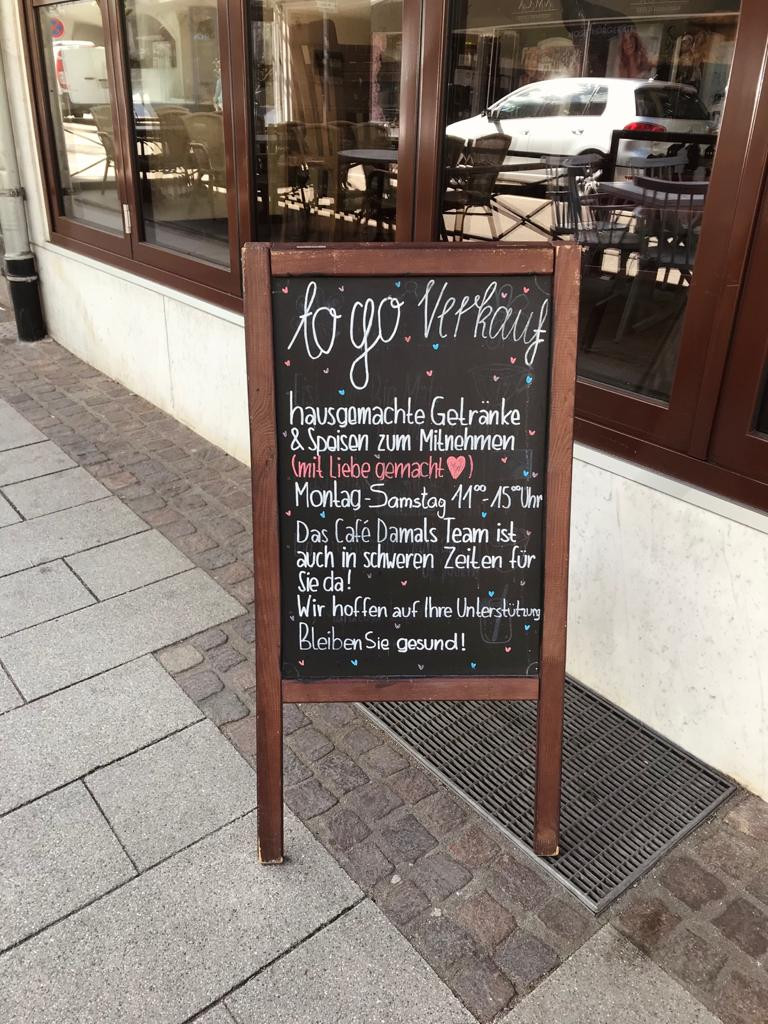 to go Verkauf
hausgemachte Getränke
& Speisen zum Mitnehmen
(mit Liebe gemacht ♥)
Montag-Samstag 11°°-15°°Uhr
Das Café Damals Team ist
auch in schweren Zeiten für
Sie da!
Wir hoffen auf Ihre Unterstützung
Bleiben Sie gesund!